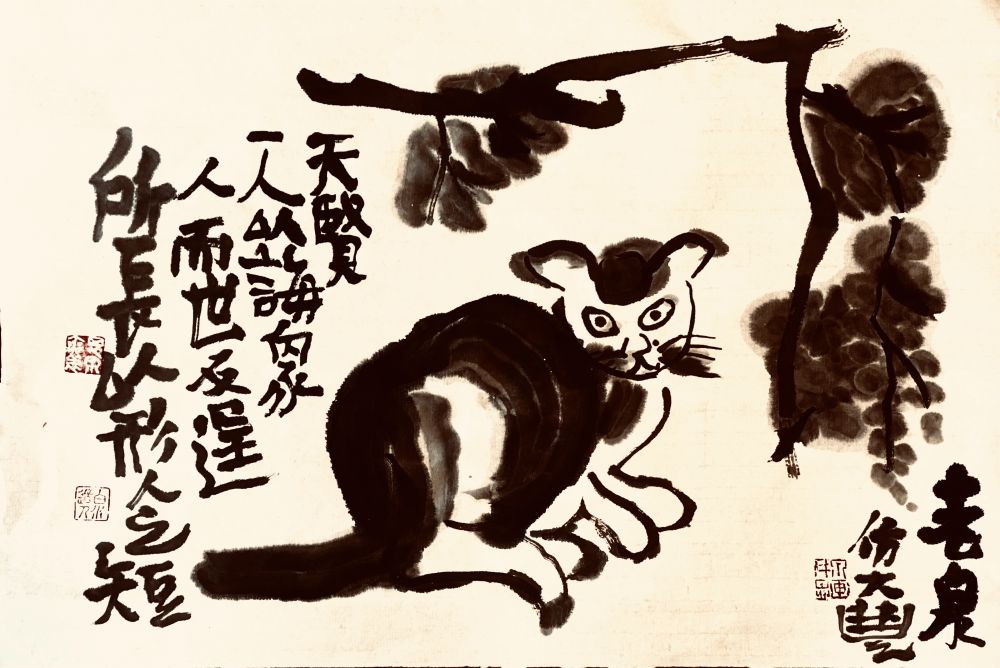 天賢
一人以誨衆
人而世反逞
所長以形人之短
泉
仿大豐